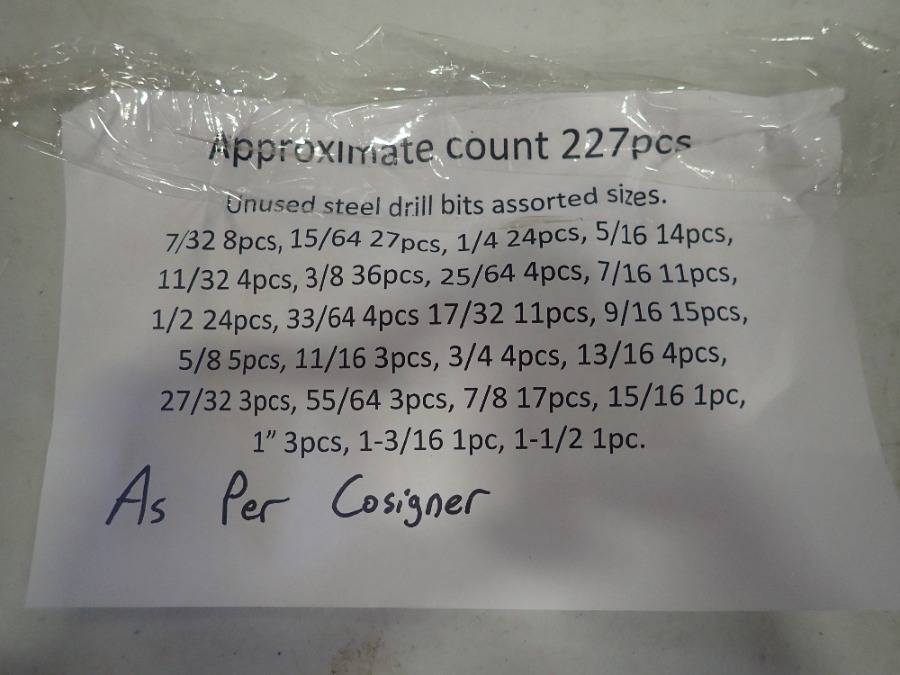 Approximate count 227pcs
Unused steel drill bits assorted sizes.
7/32 8pcs, 15/64 27pcs, 1/4 24pcs, 5/16 14pcs,
11/32 4pcs, 3/8 36pcs, 25/64 4pcs, 7/16 11pcs,
1/2 24pcs, 33/64 4pcs 17/32 11pcs, 9/16 15pcs,
5/8 5pcs, 11/16 3pcs, 3/4 4pcs, 13/16 4pcs,
27/32 3pcs, 55/64 3pcs, 7/8 17pcs, 15/16 1pc,
1” 3pcs, 1-3/16 1pc, 1-1/2 1pc.
As Per Cosigner